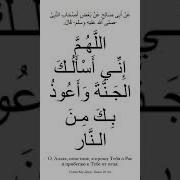 عَنْ أَبِي صَالِحٍ عَنْ بَعْضِ أَصْحَابِ النَّبِيِّ
صلى الله عليه وسلم قَالَ:
اللَّهُمَّ
إِنِّي أَسْأَلُكَ
الجَنَّةَ وَأَعُوذُ
بِكَ مِنَ
النَّارِ
О, Аллах, поистине, я прошу Тебя о Рае
и прибегаю к Тебе от огня.